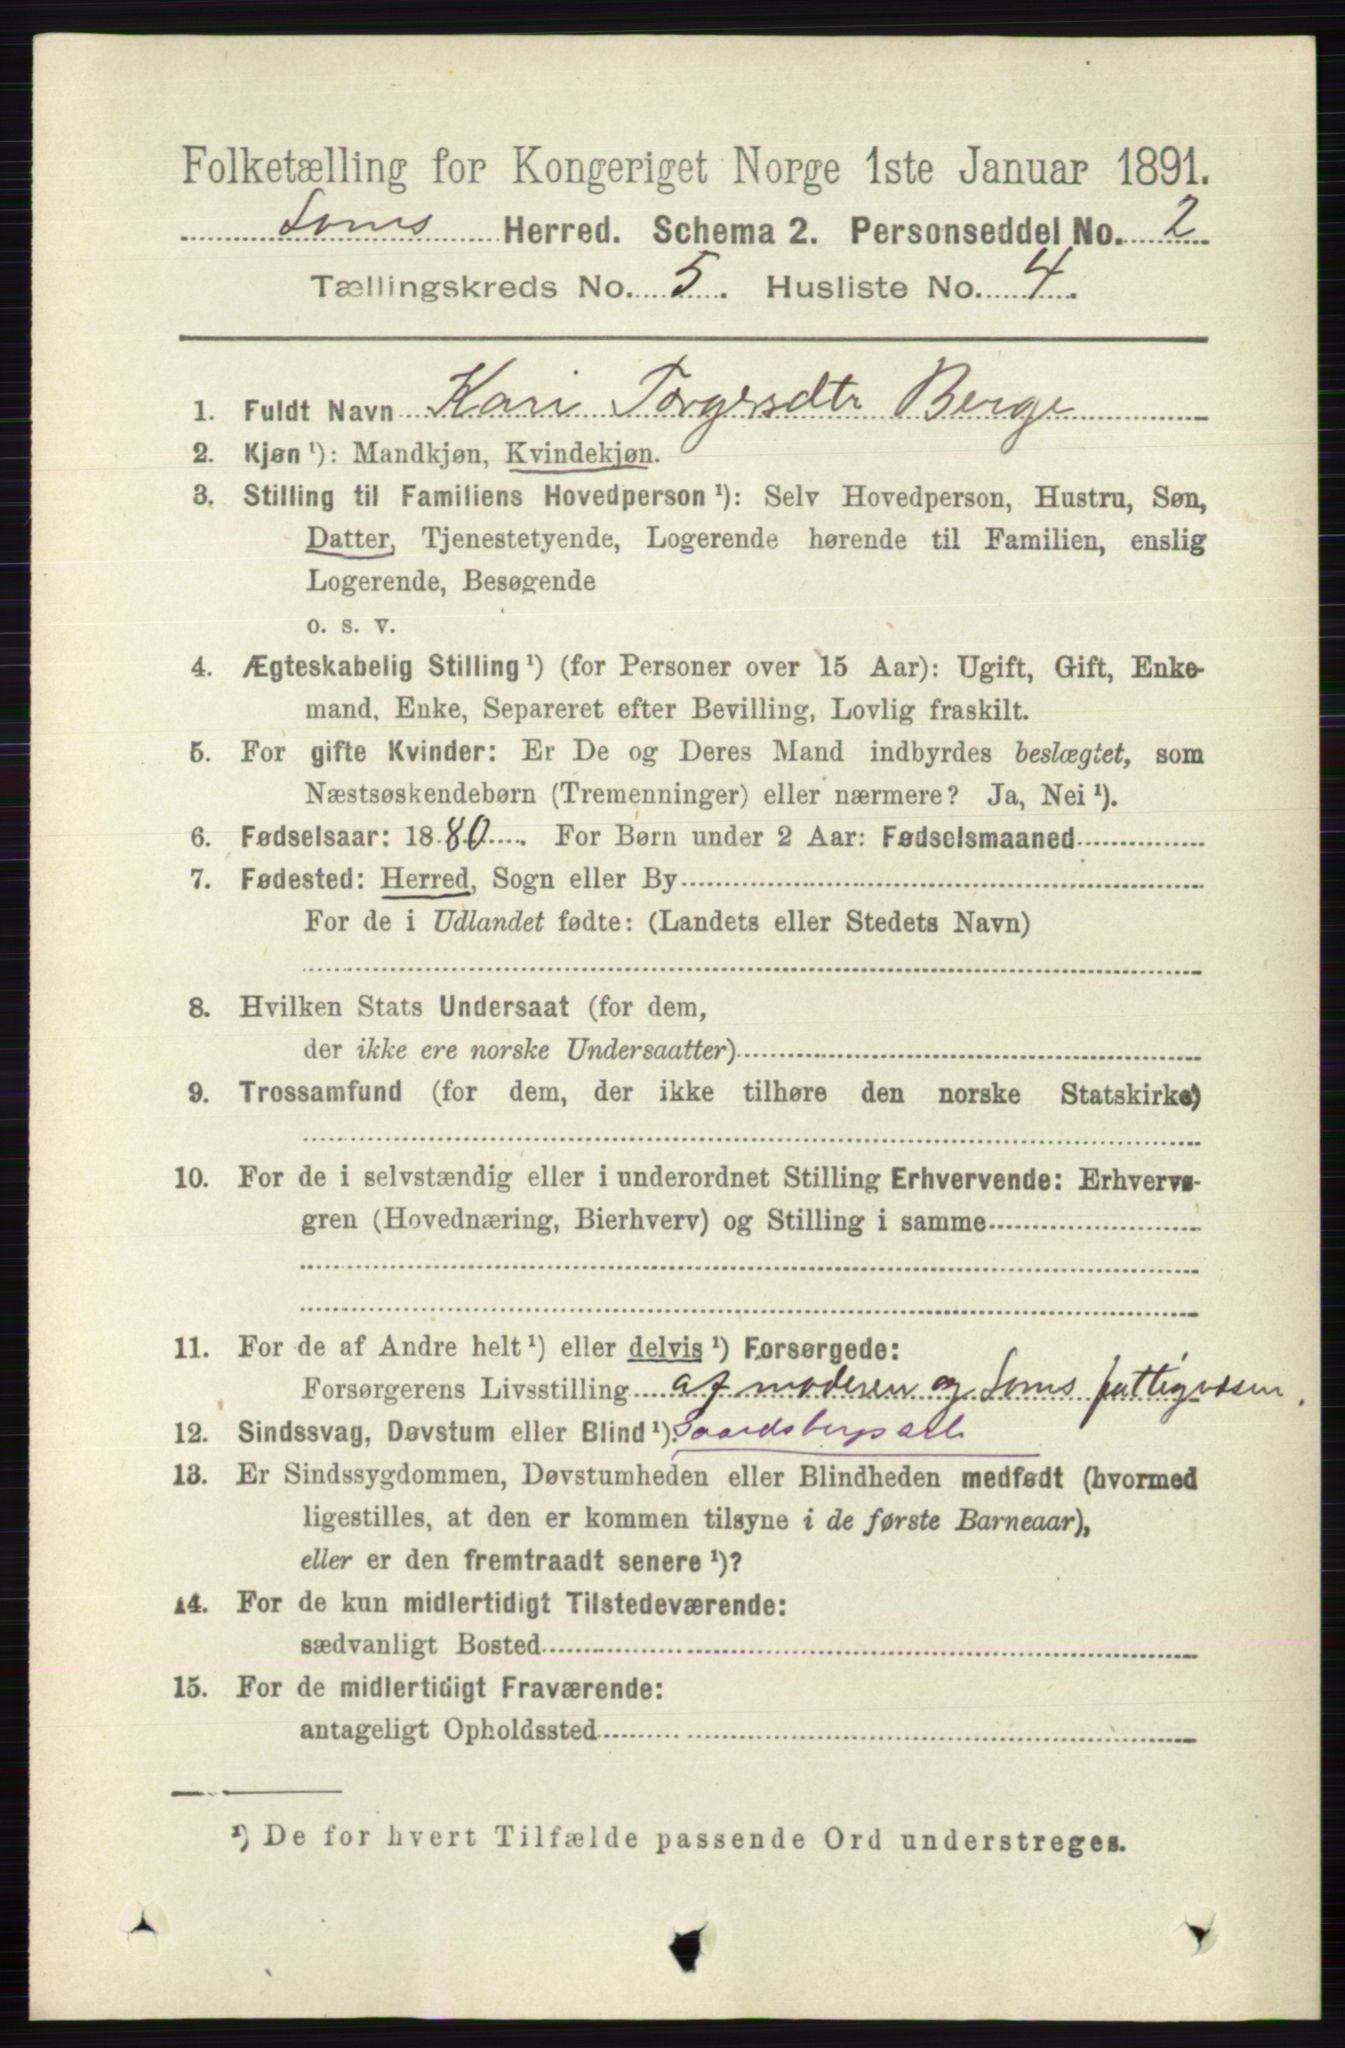 Folketælling for Kongeriget Norge 1ste Januar 1891.
Loms Herred. Schema 2. Personseddel No. 2
Tællingskreds No. 5. Husliste No. 4.
1. Fuldt Navn Kari Torgersdtr Berge
2. Kjøn ¹): Mandkjøn, Kvindekjøn.
3. Stilling til Familiens Hovedperson ¹): Selv Hovedperson, Hustru, Søn,
Datter, Tjenestetyende, Logerende hørende til Familien, enslig
Logerende, Besøgende
o. s. v.
4. Ægteskabelig Stilling ¹) (for Personer over 15 Aar): Ugift, Gift, Enke-
mand, Enke, Separeret efter Bevilling, Lovlig fraskilt.
5. For gifte Kvinder: Er De og Deres Mand indbyrdes beslægtet, som
Næstsøskendebørn (Tremenninger) eller nærmere? Ja, Nei ¹).
6. Fødselsaar: 1880. For Børn under 2 Aar: Fødselsmaaned
7. Fødested: Herred, Sogn eller By
For de i Udlandet fødte: (Landets eller Stedets Navn)
8. Hvilken Stats Undersaat (for dem,
der ikke ere norske Undersaatter)
9. Trossamfund (for dem, der ikke tilhøre den norske Statskirke)
10. For de i selvstændig eller i underordnet Stilling Erhvervende: Erhvervs-
gren (Hovednæring, Bierhverv) og Stilling i samme
11. For de af Andre helt ¹) eller delvis ¹) Forsørgede:
Forsørgerens Livsstilling af moderen og Loms fattigvæsen.
12. Sindssvag, Døvstum eller Blind ¹).
13. Er Sindssygdommen, Døvstumheden eller Blindheden medfødt (hvormed
ligestilles, at den er kommen tilsyne i de første Barneaar),
eller er den fremtraadt senere ¹)?
14. For de kun midlertidigt Tilstedeværende:
sædvanligt Bosted
15. For de midlertidigt Fraværende:
antageligt Opholdssted
¹) De for hvert Tilfælde passende Ord understreges.